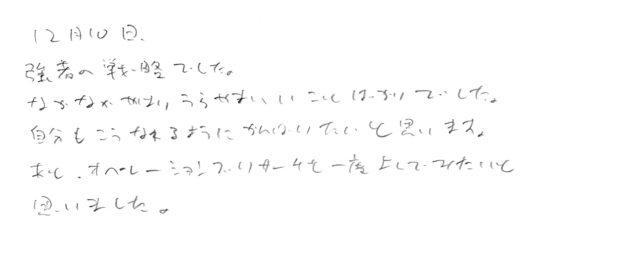 12月10日、
強者の戦略でした。
なかなか うらやましいことばかりでした。
自分もこうなれるようにがんばりたいと思います。
あと、オペレーションズリサーチも一度よしてみたいと
思いました。